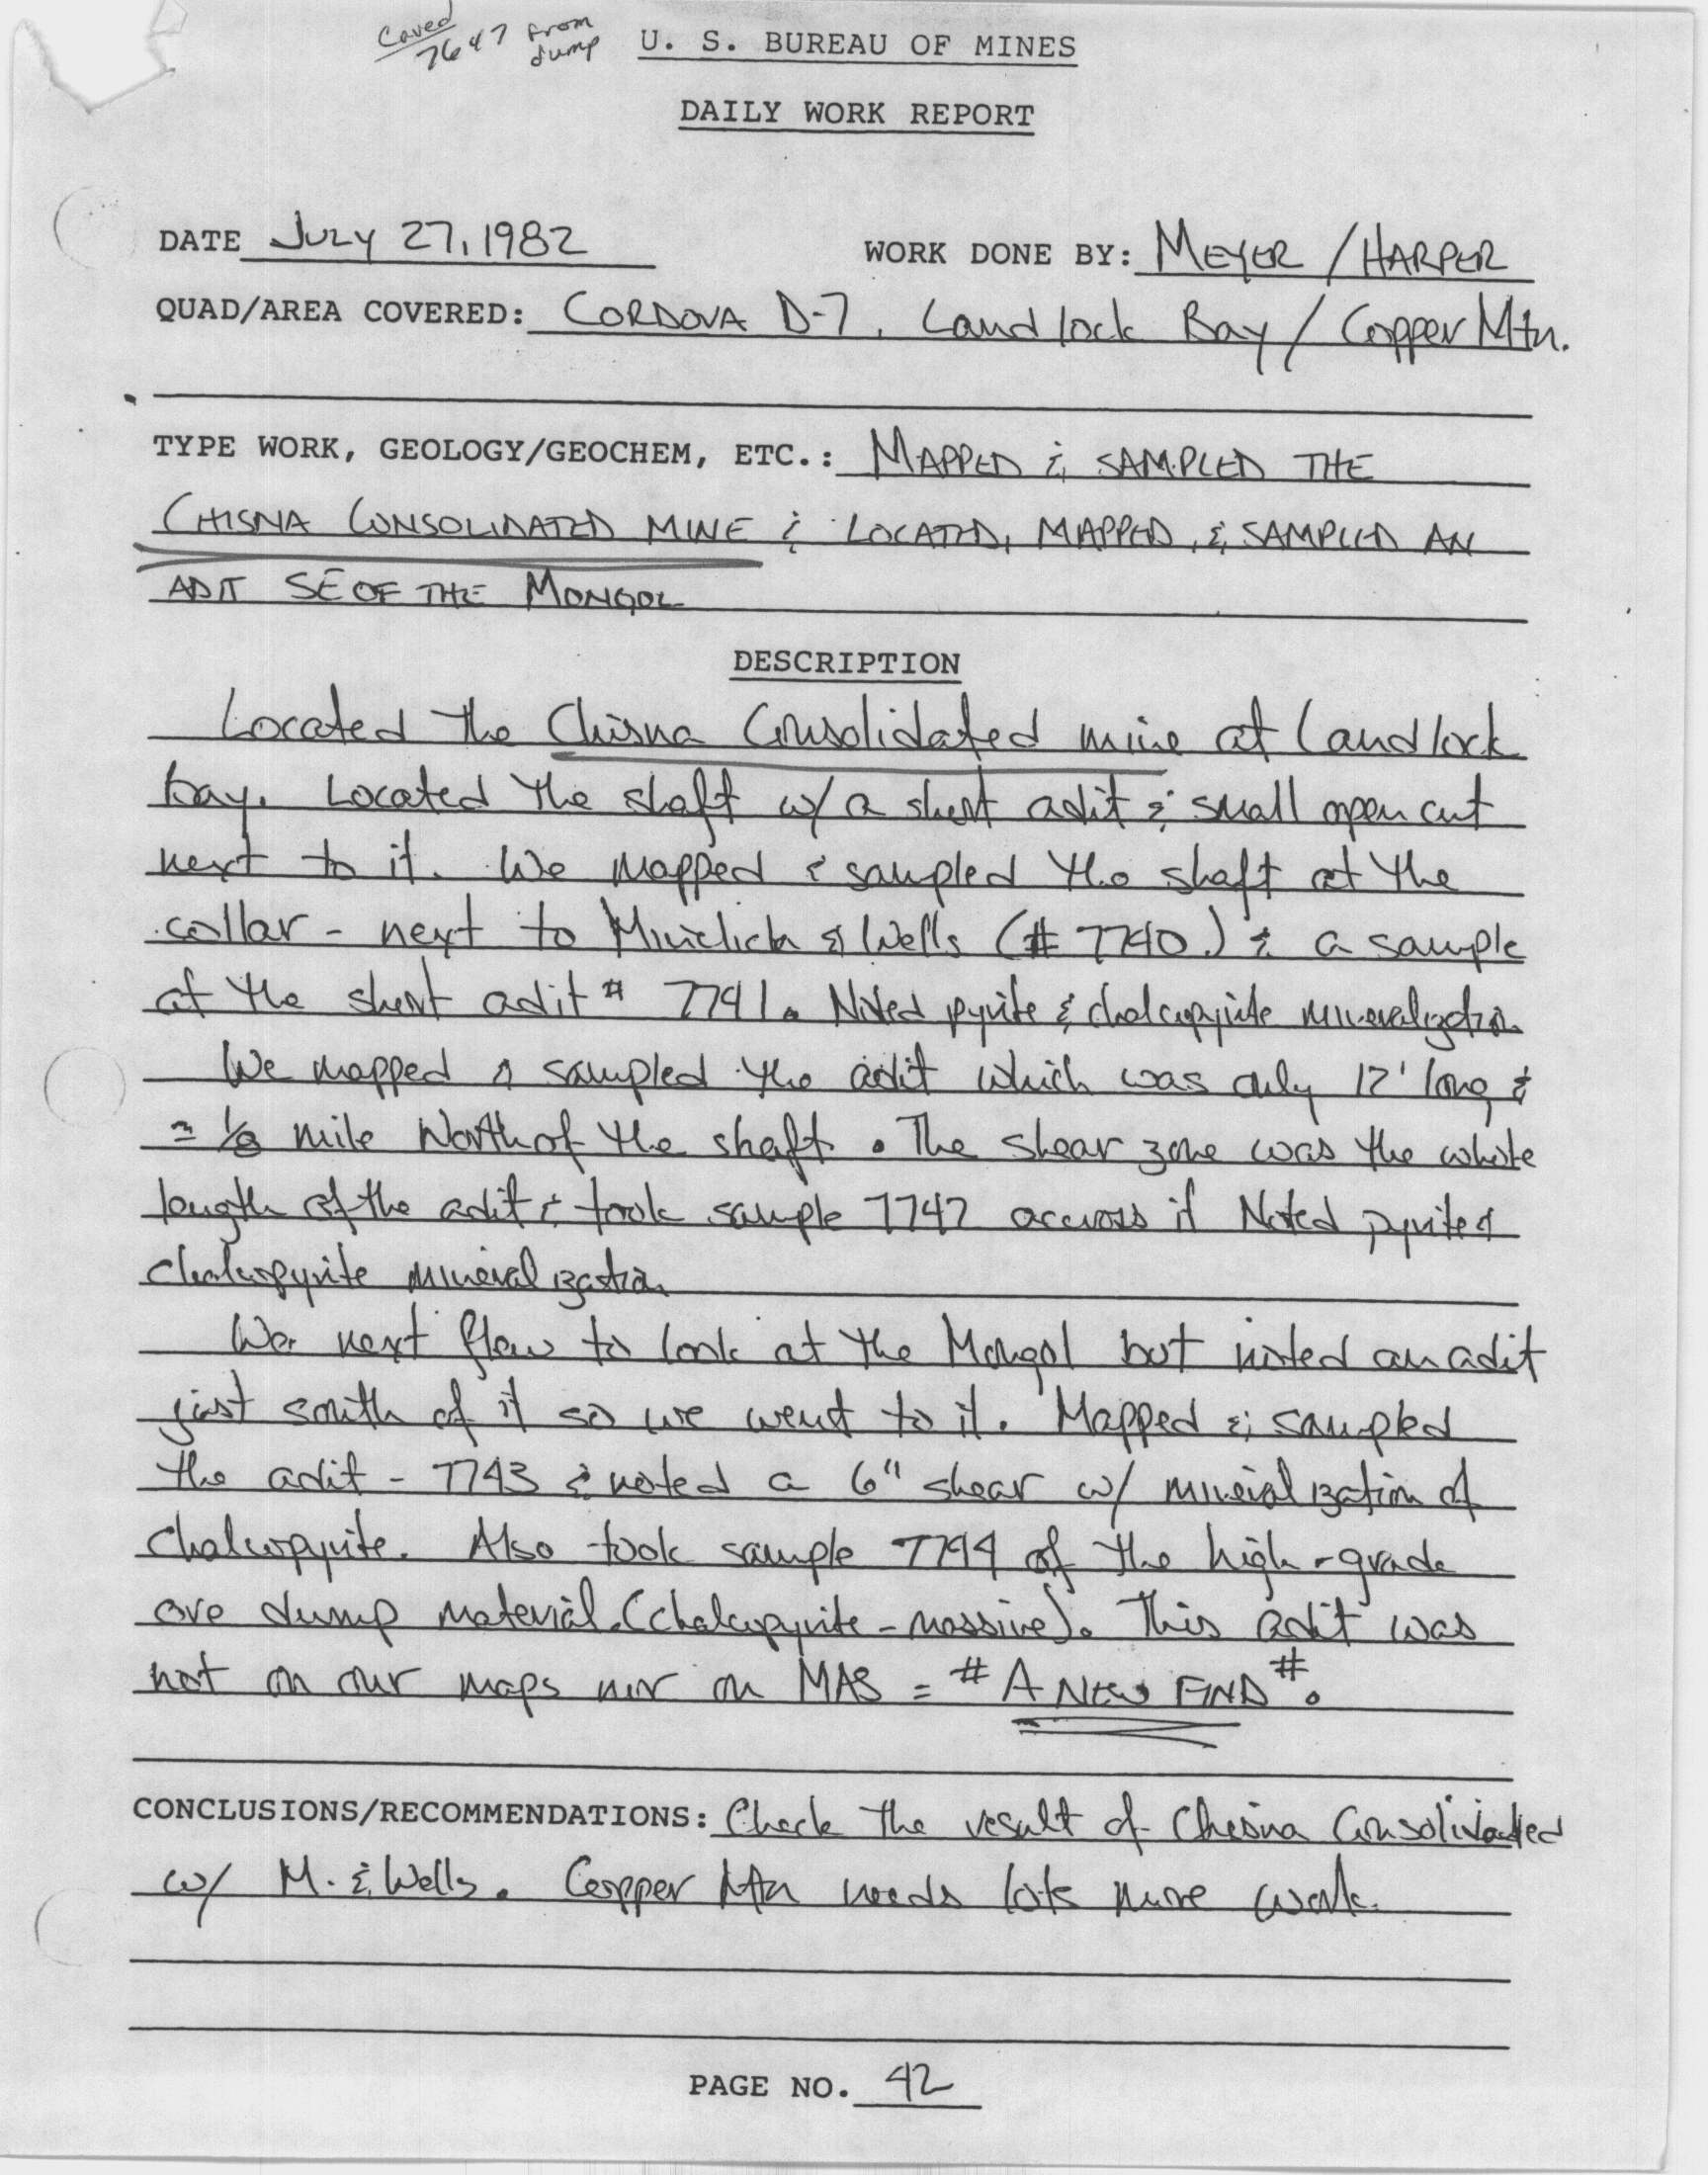 Caved
7647 from
dump
U. S. BUREAU OF MINES
DAILY WORK REPORT
DATE July 27, 1982 WORK DONE BY: MEYER / HARPER
QUAD/AREA COVERED: CORDOVA D-7, Landlock Bay / Copper Mtn.
TYPE WORK, GEOLOGY/GEOCHEM, ETC.: MAPPED & SAMPLED THE
CHISNA CONSOLIDATED MINE & LOCATED, MAPPED, & SAMPLED AN
ADIT SE OF THE MONGOL
DESCRIPTION
Located the Chisna Consolidated mine at Landlock
bay. Located the shaft w/ a short adit & small open cut
next to it. We mapped & sampled the shaft at the
collar - next to & Wells (# 7740) & a sample
at the short adit # 7741. Noted pyrite & chalcopyrite mineralization
We mapped & sampled the adit which was only 12' long &
≈ 1/8 mile North of the shaft. The shear zone was the whole
length of the adit & took sample 7742 accross it Noted pyrite &
chalcopyrite mineralization
We next flew to look at the Mongol but noted an adit
just south of it so we went to it. Mapped & sampled
the adit - 7743 & noted a 6" shear w/ mineralization of
chalcopyrite. Also took sample 7744 of the high-grade
ore dump material. (chalcopyrite - massive). This adit was
not on our maps nor on MAS = # A NEW FIND #.
CONCLUSIONS/RECOMMENDATIONS: Check the result of Chisna Consolidated
w/ M. & Wells. Copper Mtn needs lots more work.
PAGE NO. 42